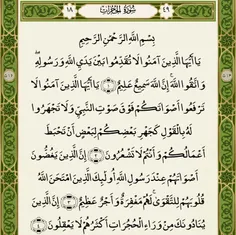 ١٨ سُورَةُ الحُجُرَاتِ ٤٩
بِسْمِ اللَّهِ الرَّحْمَٰنِ الرَّحِيمِ
يَا أَيُّهَا الَّذِينَ آمَنُوا لَا تُقَدِّمُوا بَيْنَ يَدَيِ اللَّهِ وَرَسُولِهِ ۖ
وَاتَّقُوا اللَّهَ ۚ إِنَّ اللَّهَ سَمِيعٌ عَلِيمٌ ١ يَا أَيُّهَا الَّذِينَ آمَنُوا لَا
تَرْفَعُوا أَصْوَاتَكُمْ فَوْقَ صَوْتِ النَّبِيِّ وَلَا تَجْهَرُوا
لَهُ بِالْقَوْلِ كَجَهْرِ بَعْضِكُمْ لِبَعْضٍ أَنْ تَحْبَطَ
أَعْمَالُكُمْ وَأَنْتُمْ لَا تَشْعُرُونَ ٢ إِنَّ الَّذِينَ يَغُضُّونَ
أَصْوَاتَهُمْ عِنْدَ رَسُولِ اللَّهِ أُولَٰئِكَ الَّذِينَ امْتَحَنَ اللَّهُ
قُلُوبَهُمْ لِلتَّقْوَىٰ ۚ لَهُمْ مَغْفِرَةٌ وَأَجْرٌ عَظِيمٌ ٣ إِنَّ الَّذِينَ
يُنَادُونَكَ مِنْ وَرَاءِ الْحُجُرَاتِ أَكْثَرُهُمْ لَا يَعْقِلُونَ ٤